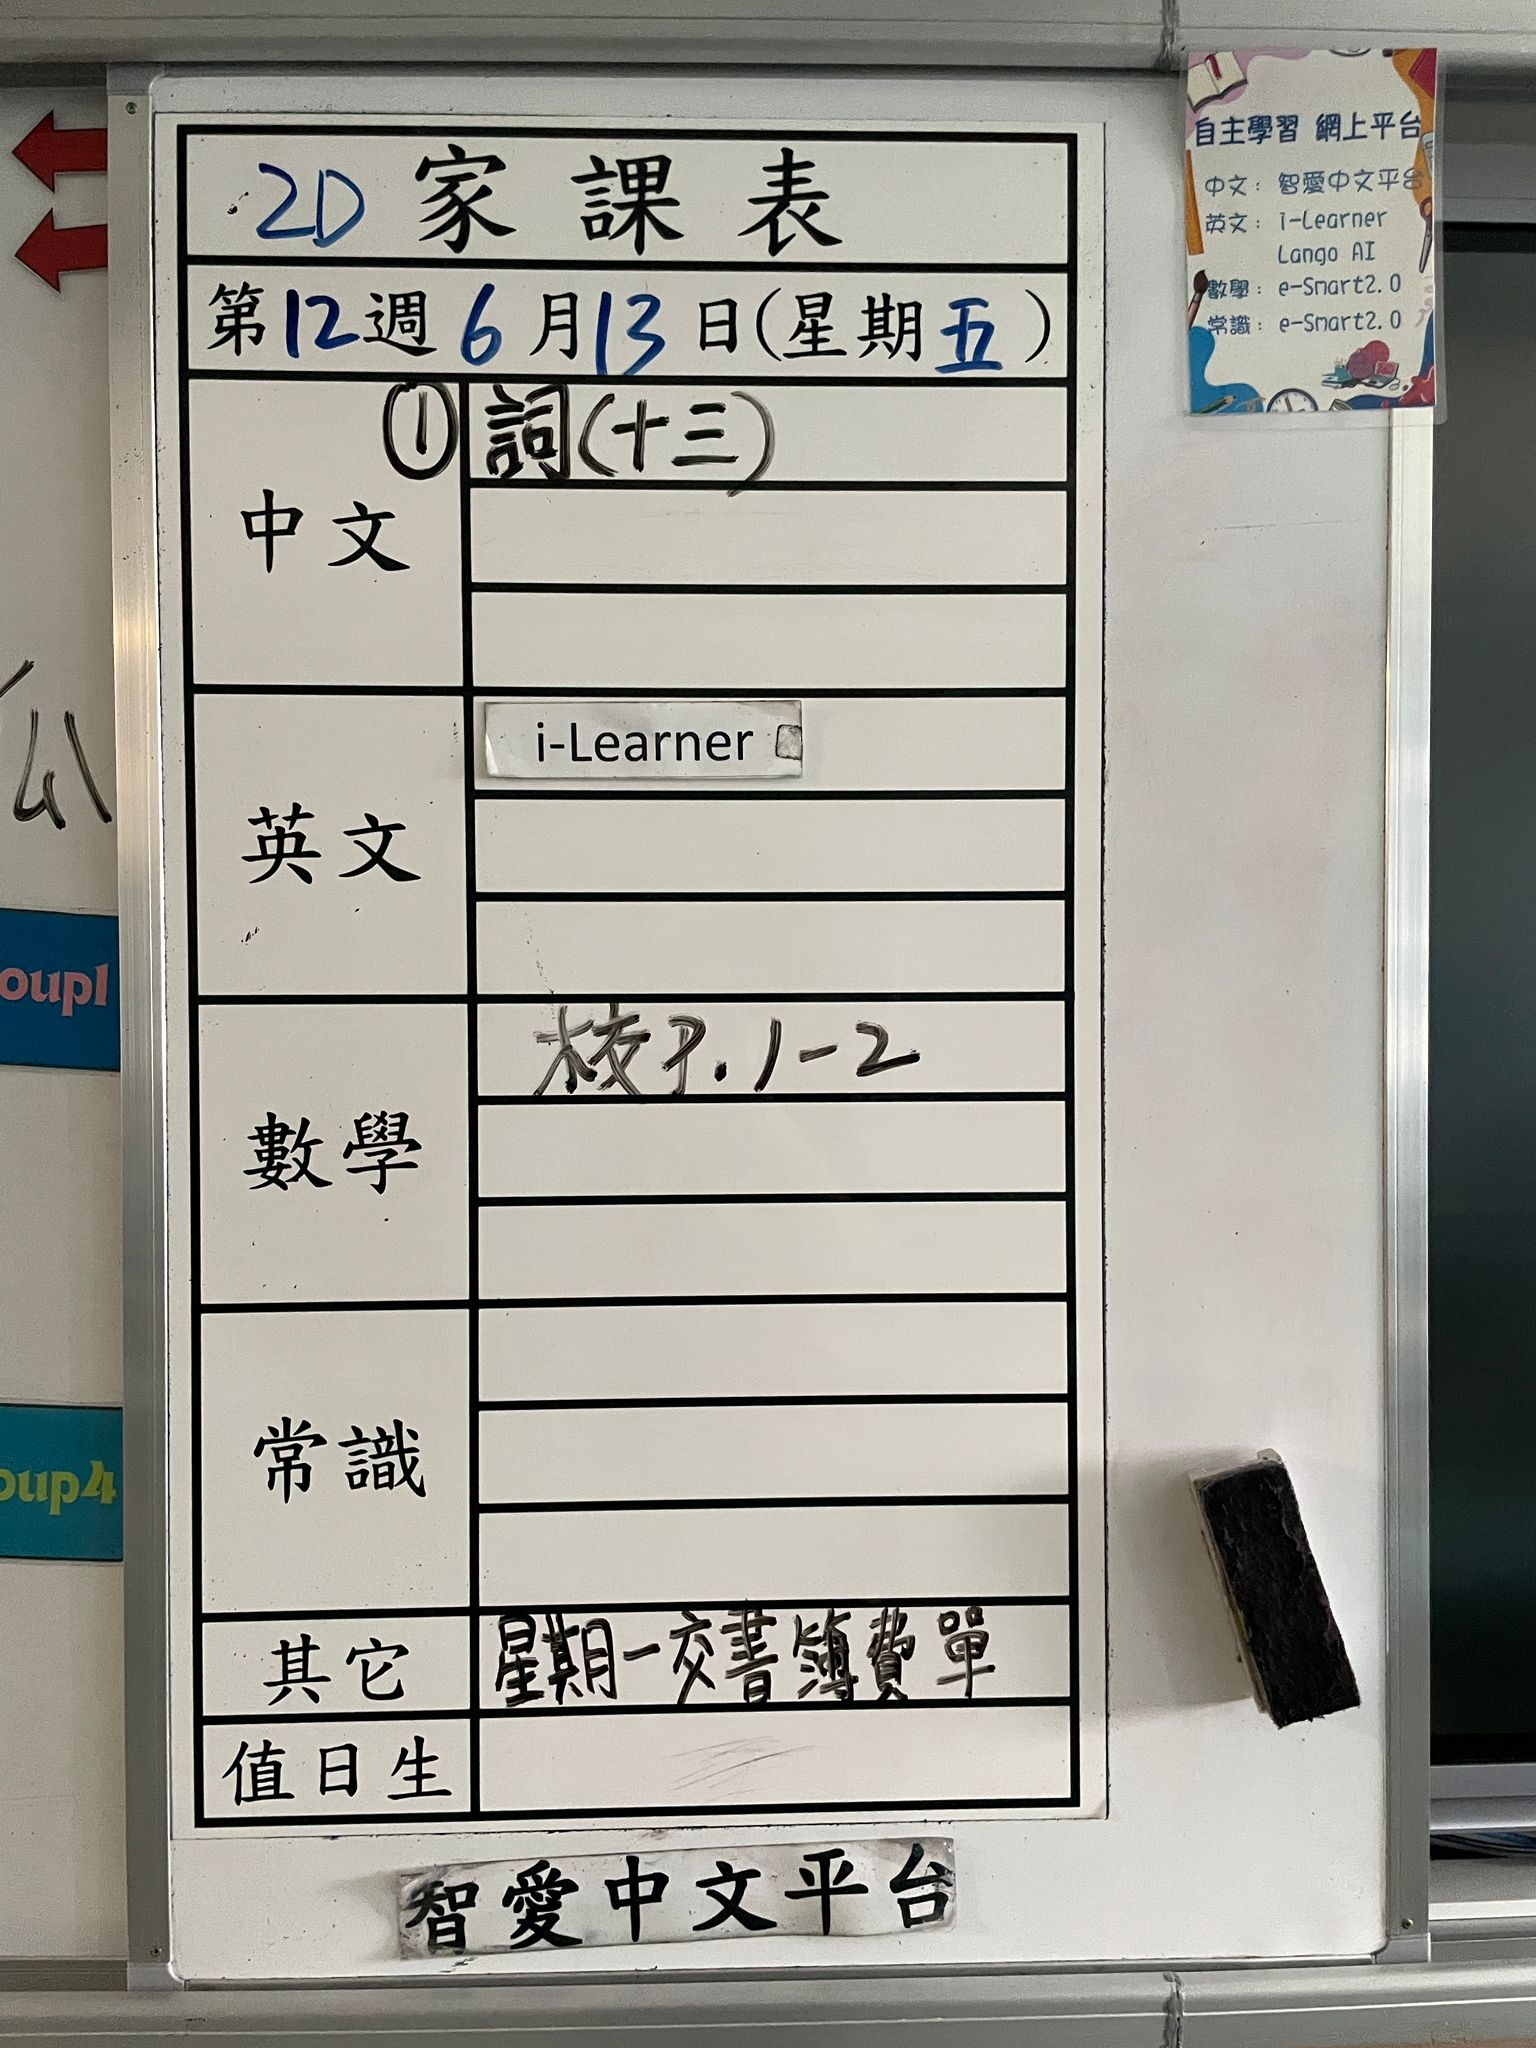 2D 家課表
第12週6月13日(星期五)
中文
① 詞(十三)
英文
i-Learner
數學
校P.1-2
常識
其它
星期一交書簿費單
值日生
智愛中文平台
自主學習 網上平台
中文：智愛中文平台
英文：i-Learner
Lango AI
數學：e-Smart2.0
常識：e-Smart2.0
oup1
oup4